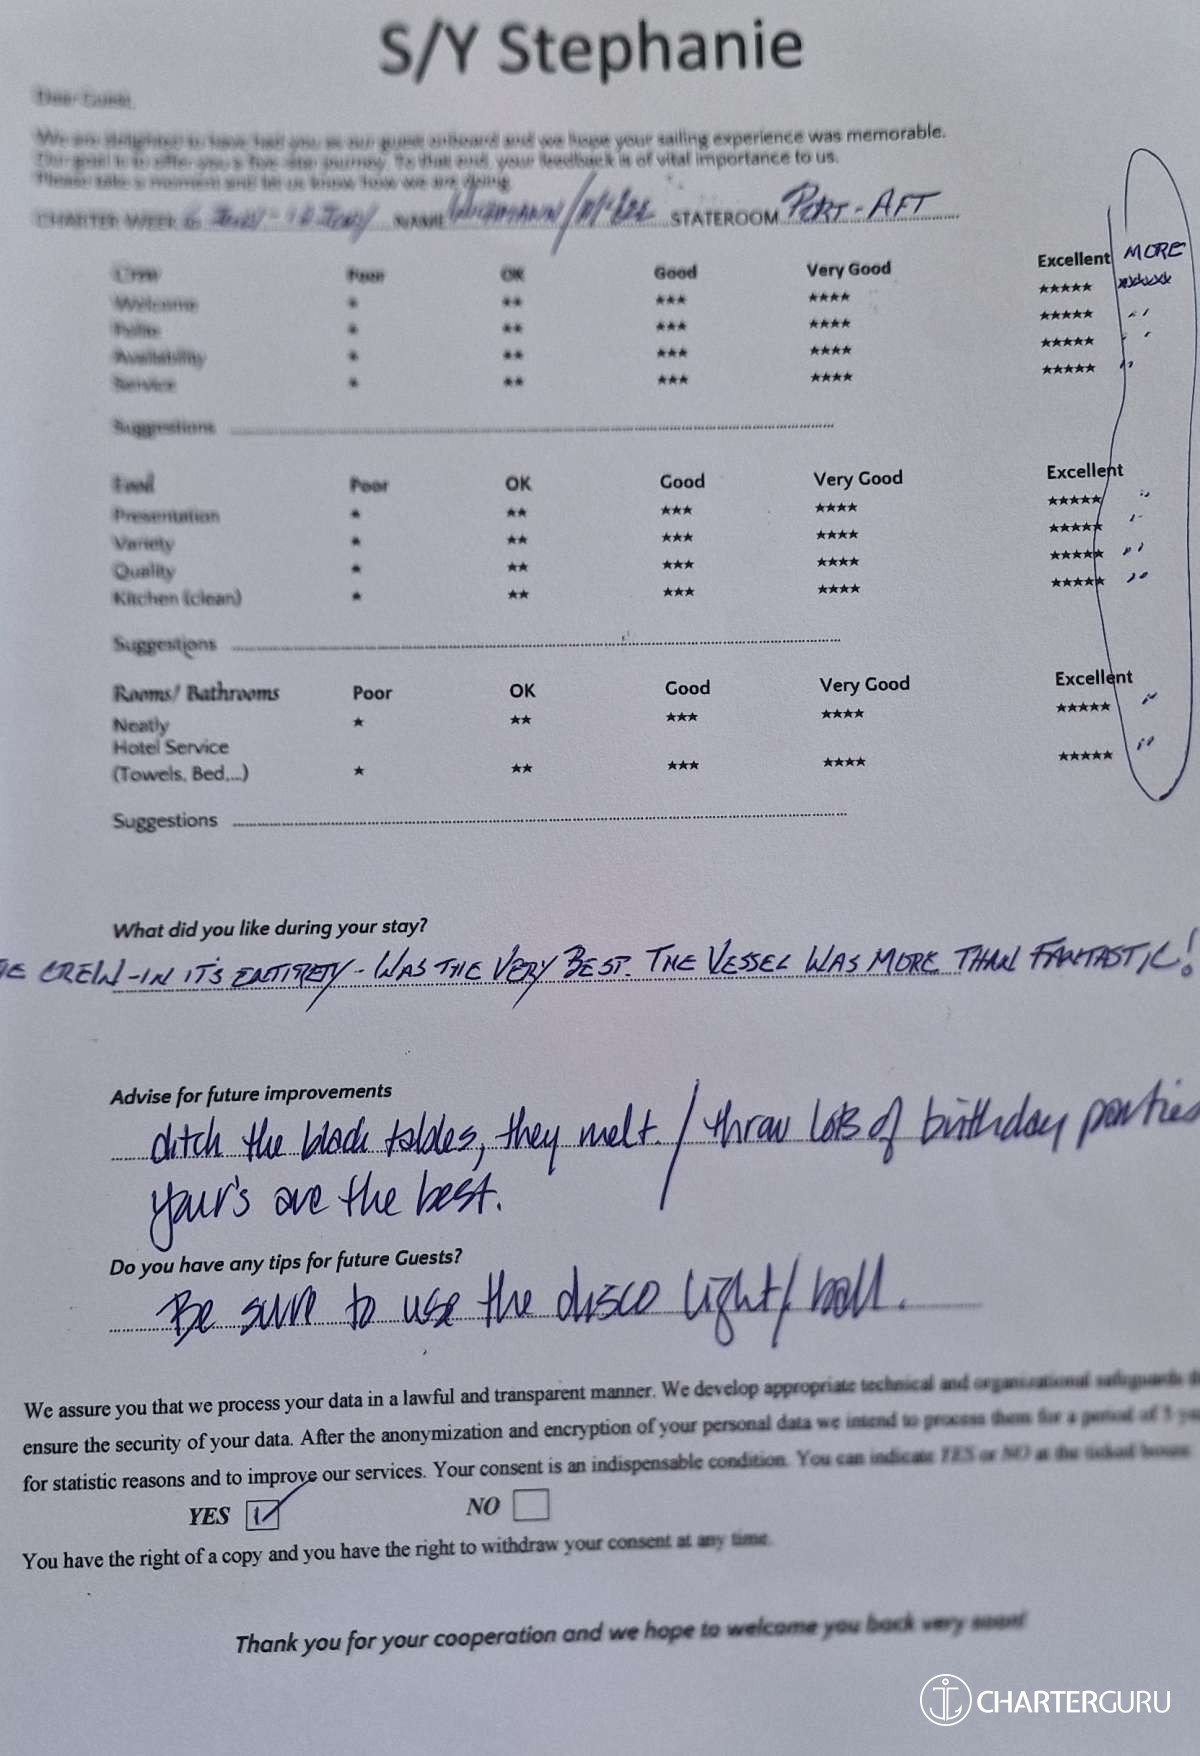 S/Y Stephanie
Dear Guest,
We are delighted to have had you as our guest onboard and we hope your sailing experience was memorable.
Our goal is to offer you a five star journey. To that end, your feedback is of vital importance to us.
Please take a moment and let us know how we are doing
CHARTER WEEK NAME STATEROOM PORT-AFT
Crew Poor OK Good Very Good Excellent MORE
Welcome * ** *** **** ***** *****
Polite * ** *** **** ***** "
Availability * ** *** **** ***** "
Service * ** *** **** ***** "
Suggestions
Food Poor OK Good Very Good Excellent
Presentation * ** *** **** ***** "
Variety * ** *** **** ***** "
Quality * ** *** **** ***** "
Kitchen (clean) * ** *** **** ***** "
Suggestions
Rooms/ Bathrooms Poor OK Good Very Good Excellent
Neatly * ** *** **** ***** "
Hotel Service
(Towels, Bed,...) * ** *** **** ***** "
Suggestions
What did you like during your stay?
CREW-IN IT'S ENTIRETY-WAS THE VERY BEST. THE VESSEL WAS MORE THAN FANTASTIC!
Advise for future improvements
ditch the black tables, they melt. / throw lots of birthday parties
your's are the best.
Do you have any tips for future Guests?
Be sure to use the disco light/ball.
We assure you that we process your data in a lawful and transparent manner. We develop appropriate technical and organizational safeguards
ensure the security of your data. After the anonymization and encryption of your personal data we intend to process them for a period of 5
for statistic reasons and to improve our services. Your consent is an indispensable condition. You can indicate YES or NO at the
YES NO
You have the right of a copy and you have the right to withdraw your consent at any time.
Thank you for your cooperation and we hope to welcome you back very soon!
CHARTERGURU